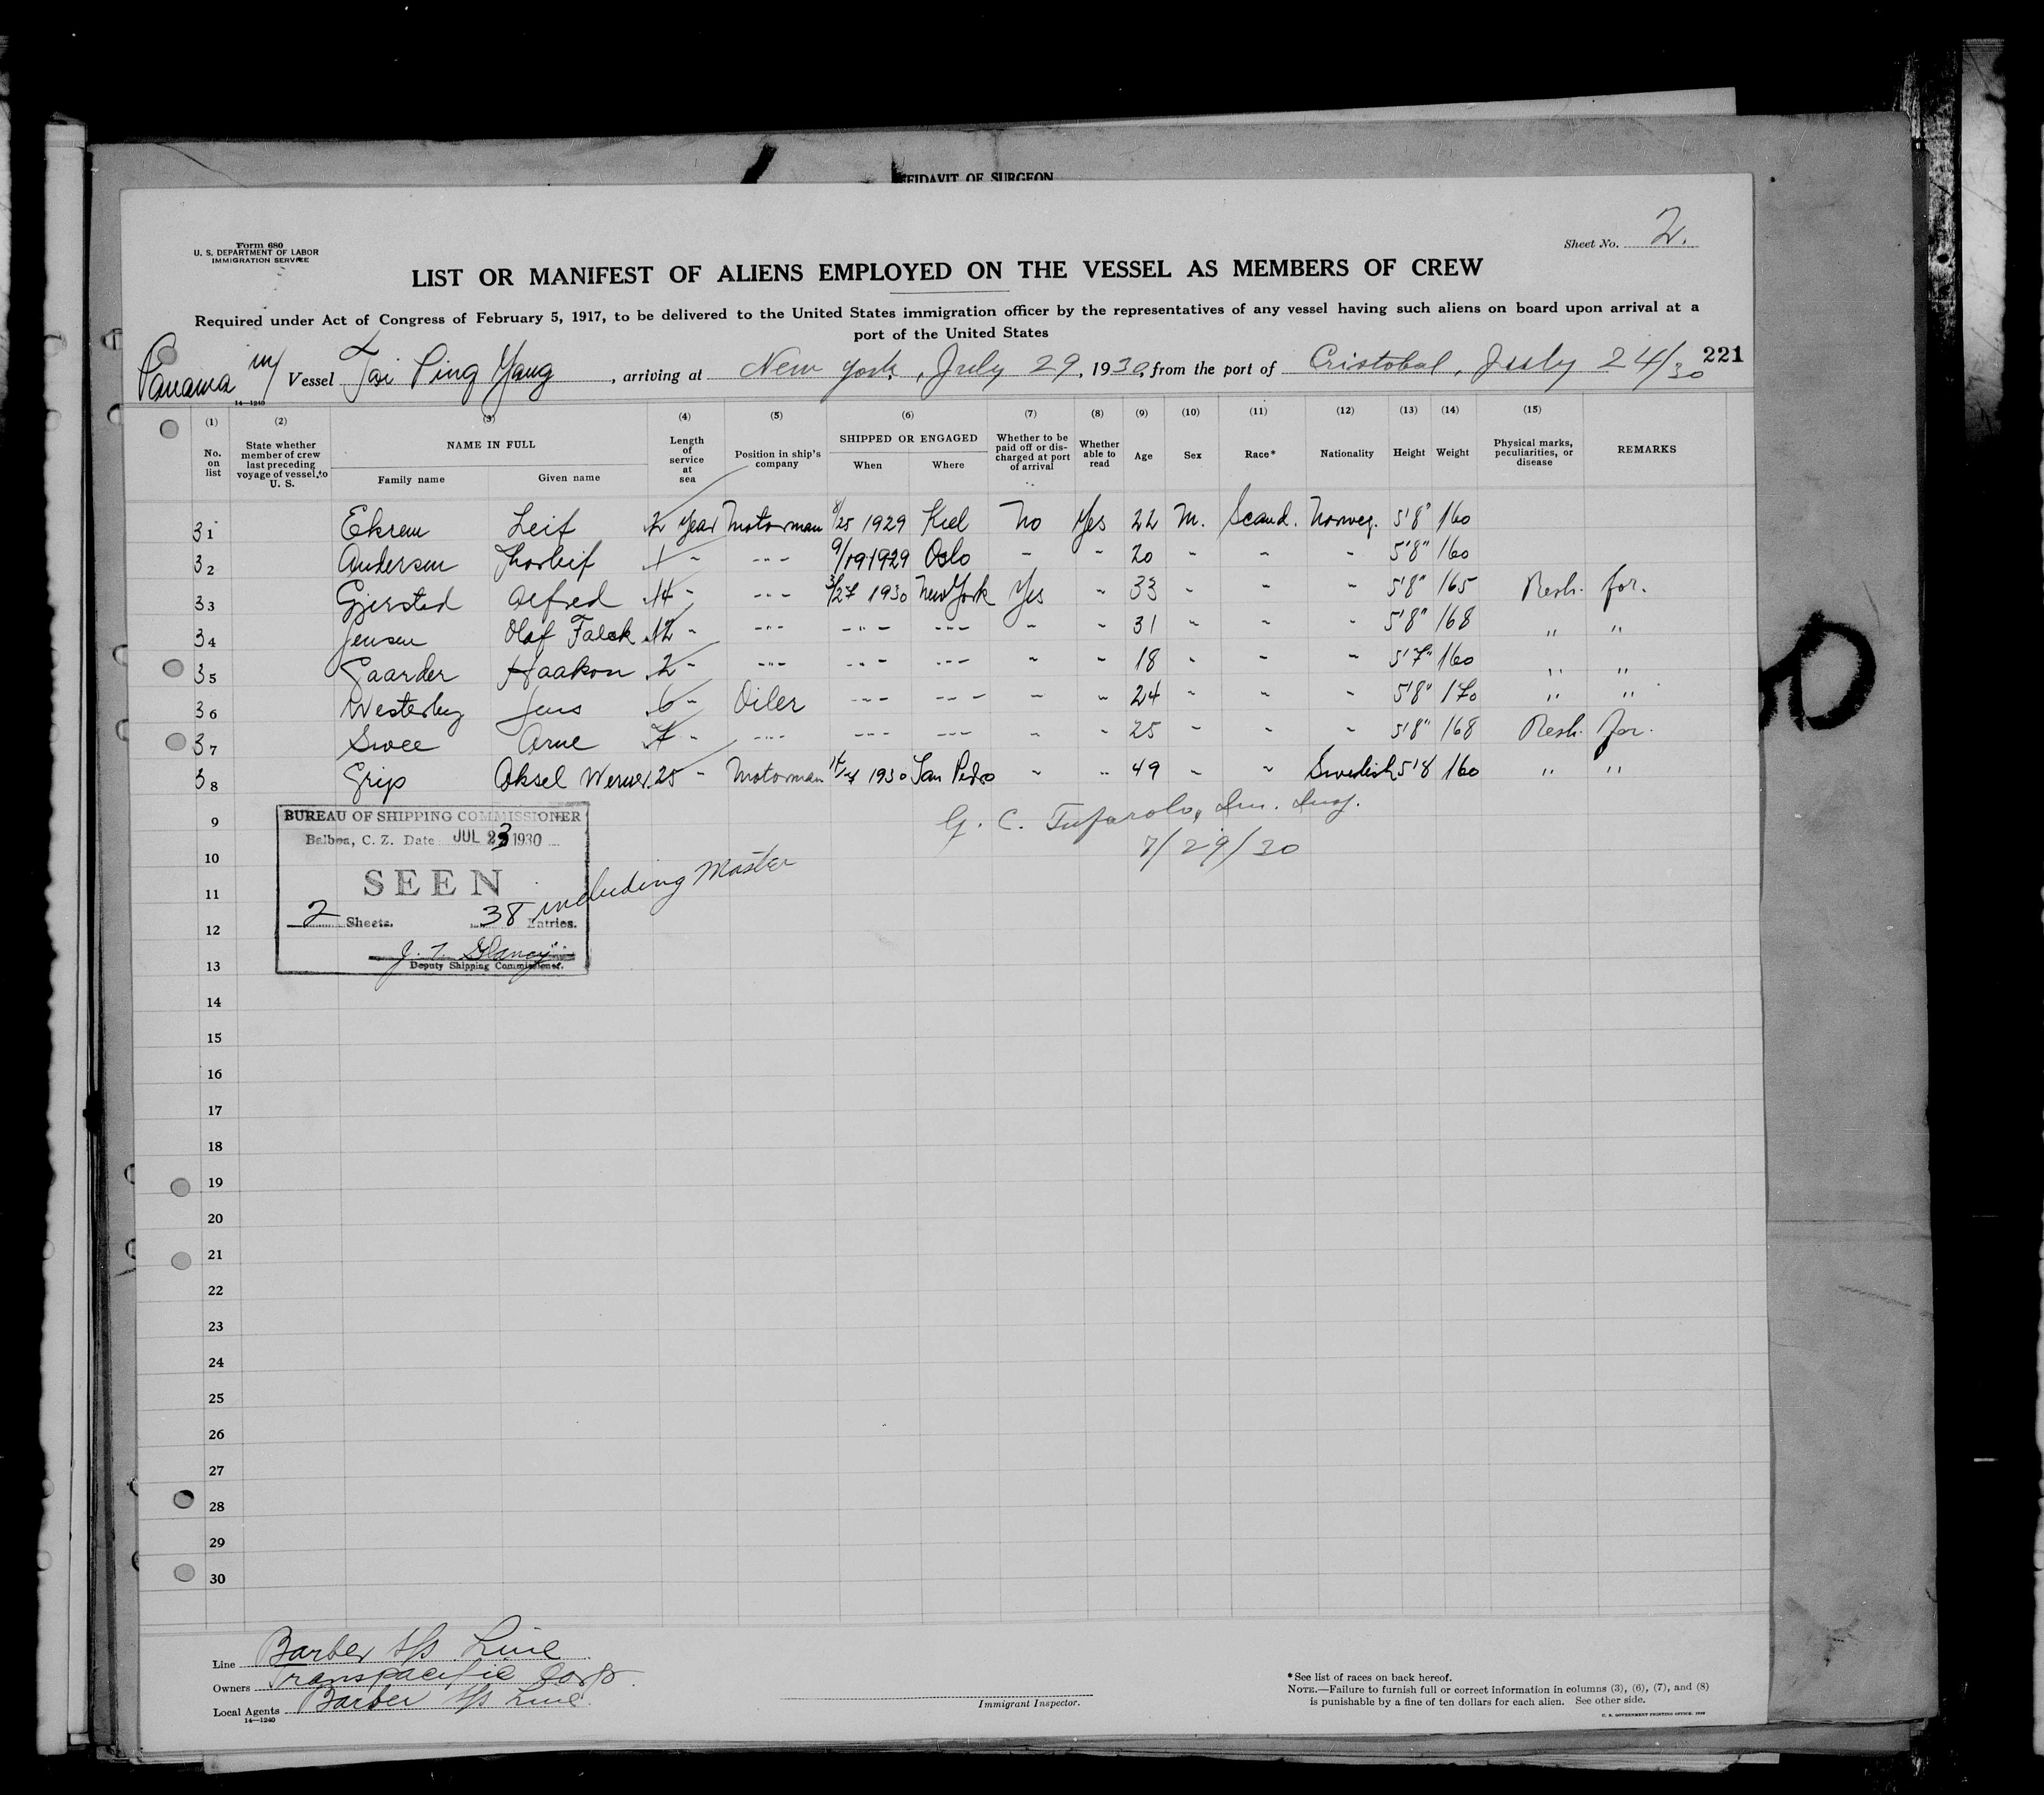 AFFIDAVIT OF SURGEON
Form 680
U. S. DEPARTMENT OF LABOR
IMMIGRATION SERVICE
Sheet No. 2.
LIST OR MANIFEST OF ALIENS EMPLOYED ON THE VESSEL AS MEMBERS OF CREW
Required under Act of Congress of February 5, 1917, to be delivered to the United States immigration officer by the representatives of any vessel having such aliens on board upon arrival at a
port of the United States
Panama m/ Vessel Tai Ping Yang, arriving at New York, July 29, 1930, from the port of Cristobal, July 24/30 221
14—1240
(1) (2) (3) (4) (5) (6) (7) (8) (9) (10) (11) (12) (13) (14) (15)
No. on list State whether member of crew last preceding voyage of vessel to U. S. NAME IN FULL Family name Given name Length of service at sea Position in ship's company SHIPPED OR ENGAGED When Where Whether to be paid off or discharged at port of arrival Whether able to read Age Sex Race* Nationality Height Weight Physical marks, peculiarities, or disease REMARKS
31 Ekrem Leif 2 Year Motorman 8/25 1929 Kiel No Yes 22 M. Scand. Norweg. 5'8" 160
32 Andersen Thorleif 1 " --- 9/19 1929 Oslo " " 20 " " " 5'8" 160
33 Gjersted Alfred 14 " --- 3/27 1930 New York Yes " 33 " " " 5'8" 165 Resh. for.
34 Jensen Olaf Falck 12 " --- --- --- " " 31 " " " 5'8" 168 " "
35 Gaarder Haakon 2 " --- --- --- " " 18 " " " 5'7" 160 " "
36 Westerby Jens 6 " Oiler --- --- " " 24 " " " 5'8" 170 " "
37 Svee Arne 7 " --- --- --- " " 25 " " " 5'8" 168 Resh. for.
38 Grip Aksel Werner 25 " Motorman 1930 San Pedro " " 49 " " Swedish 5'8 160 " "
G. C. Tufarolo, Im. Insp.
7/29/30
BUREAU OF SHIPPING COMMISSIONER
Balboa, C. Z. Date JUL 23 1930
SEEN
2 Sheets. 38 Entries. including Master
J. T. Glancy
Deputy Shipping Commissioner.
9
10
11
12
13
14
15
16
17
18
19
20
21
22
23
24
25
26
27
28
29
30
Line Barber S/S Line
Owners Transpacific Corp.
Local Agents Barber S/S Line
14—1240
Immigrant Inspector.
*See list of races on back hereof.
NOTE.—Failure to furnish full or correct information in columns (3), (6), (7), and (8)
is punishable by a fine of ten dollars for each alien. See other side.